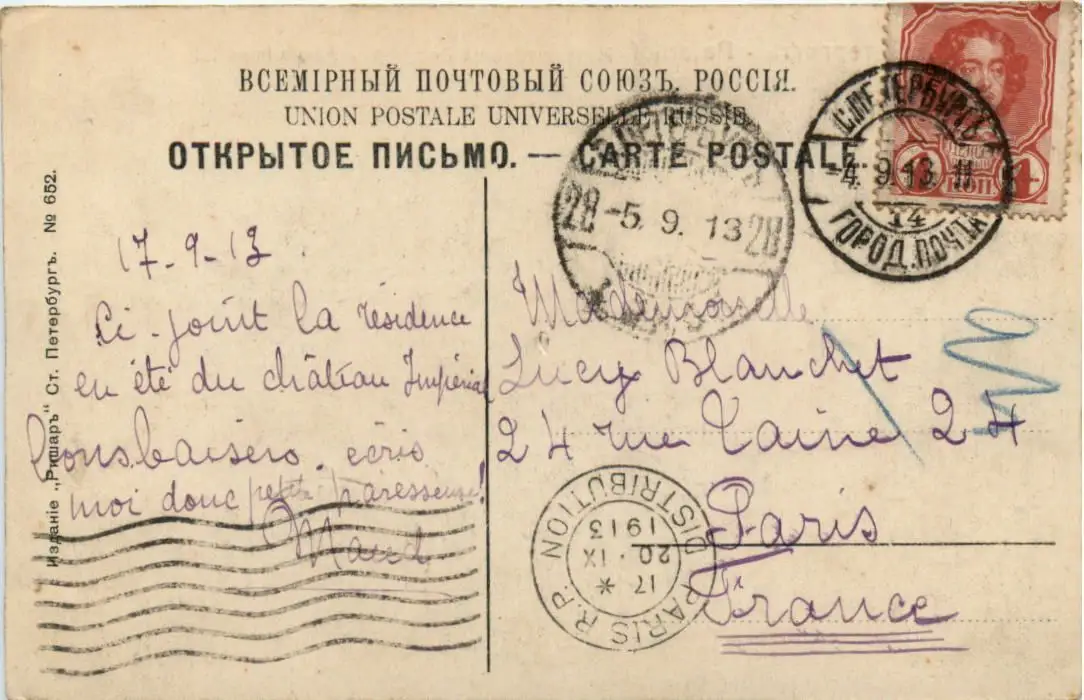 ВСЕМІРНЫЙ ПОЧТОВЫЙ СОЮЗЪ. РОССІЯ.
UNION POSTALE UNIVERSELLE. RUSSIE.
ОТКРЫТОЕ ПИСЬМО. — CARTE POSTALE.
С.ПЕТЕРБУРГЪ
-4. 9. 13. 11
14
ГОРОД. ПОЧТА
4 КОП 4
28 -5. 9. 13 28
17-9-13.
Ci-joint la résidence
en été du château Impérial
Bons baisers. écris
moi donc petite paresseuse!
Maud
Mademoiselle
Lucy Blanchet
24 rue Taine 24
Paris
France
PARIS R.P. DISTRIBUTION
17 *
20 · IX
1913
Изданіе „Ришаръ“ Ст. Петербургъ. № 652.